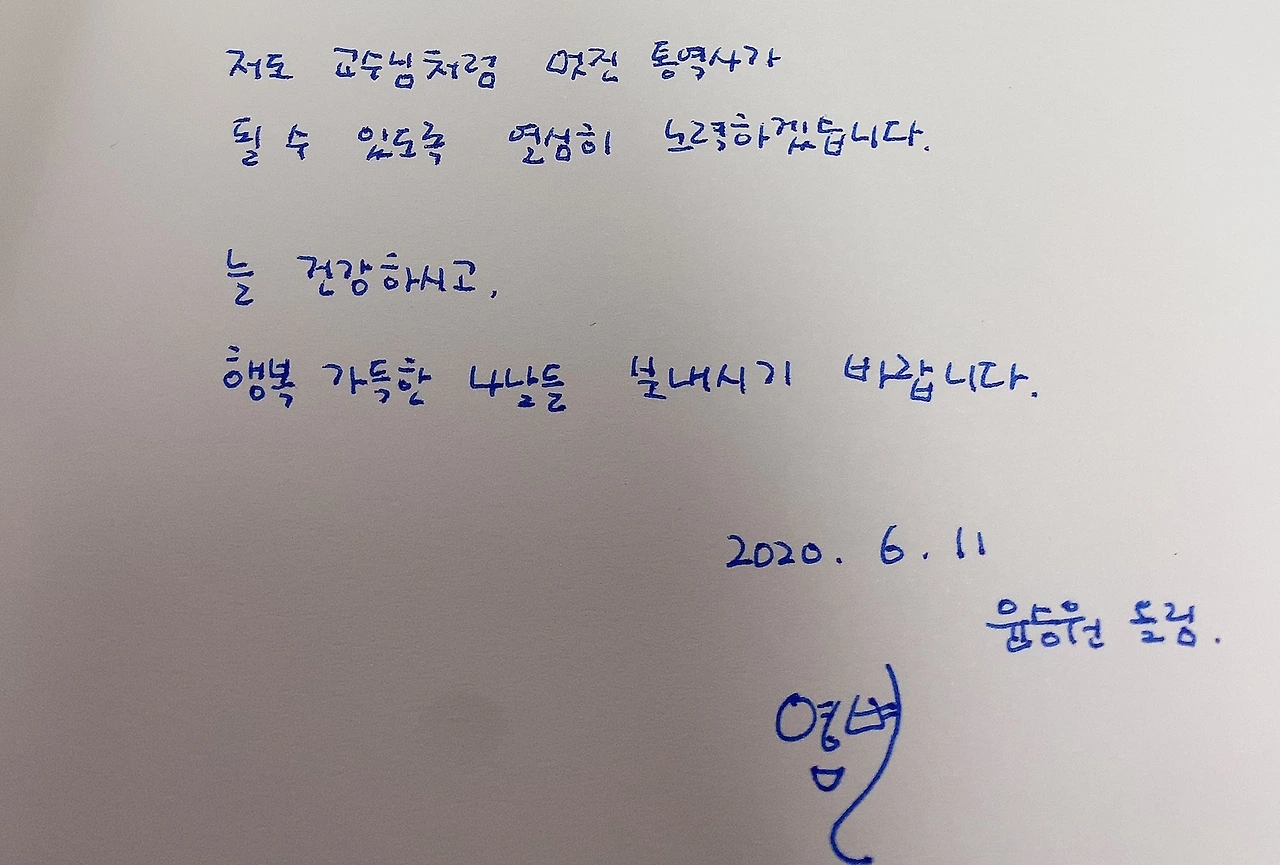 저도 교수님처럼 멋진 통역사가
될 수 있도록 열심히 노력하겠습니다.
늘 건강하시고,
행복 가득한 나날들 보내시기 바랍니다.
2020. 6. 11
드림.